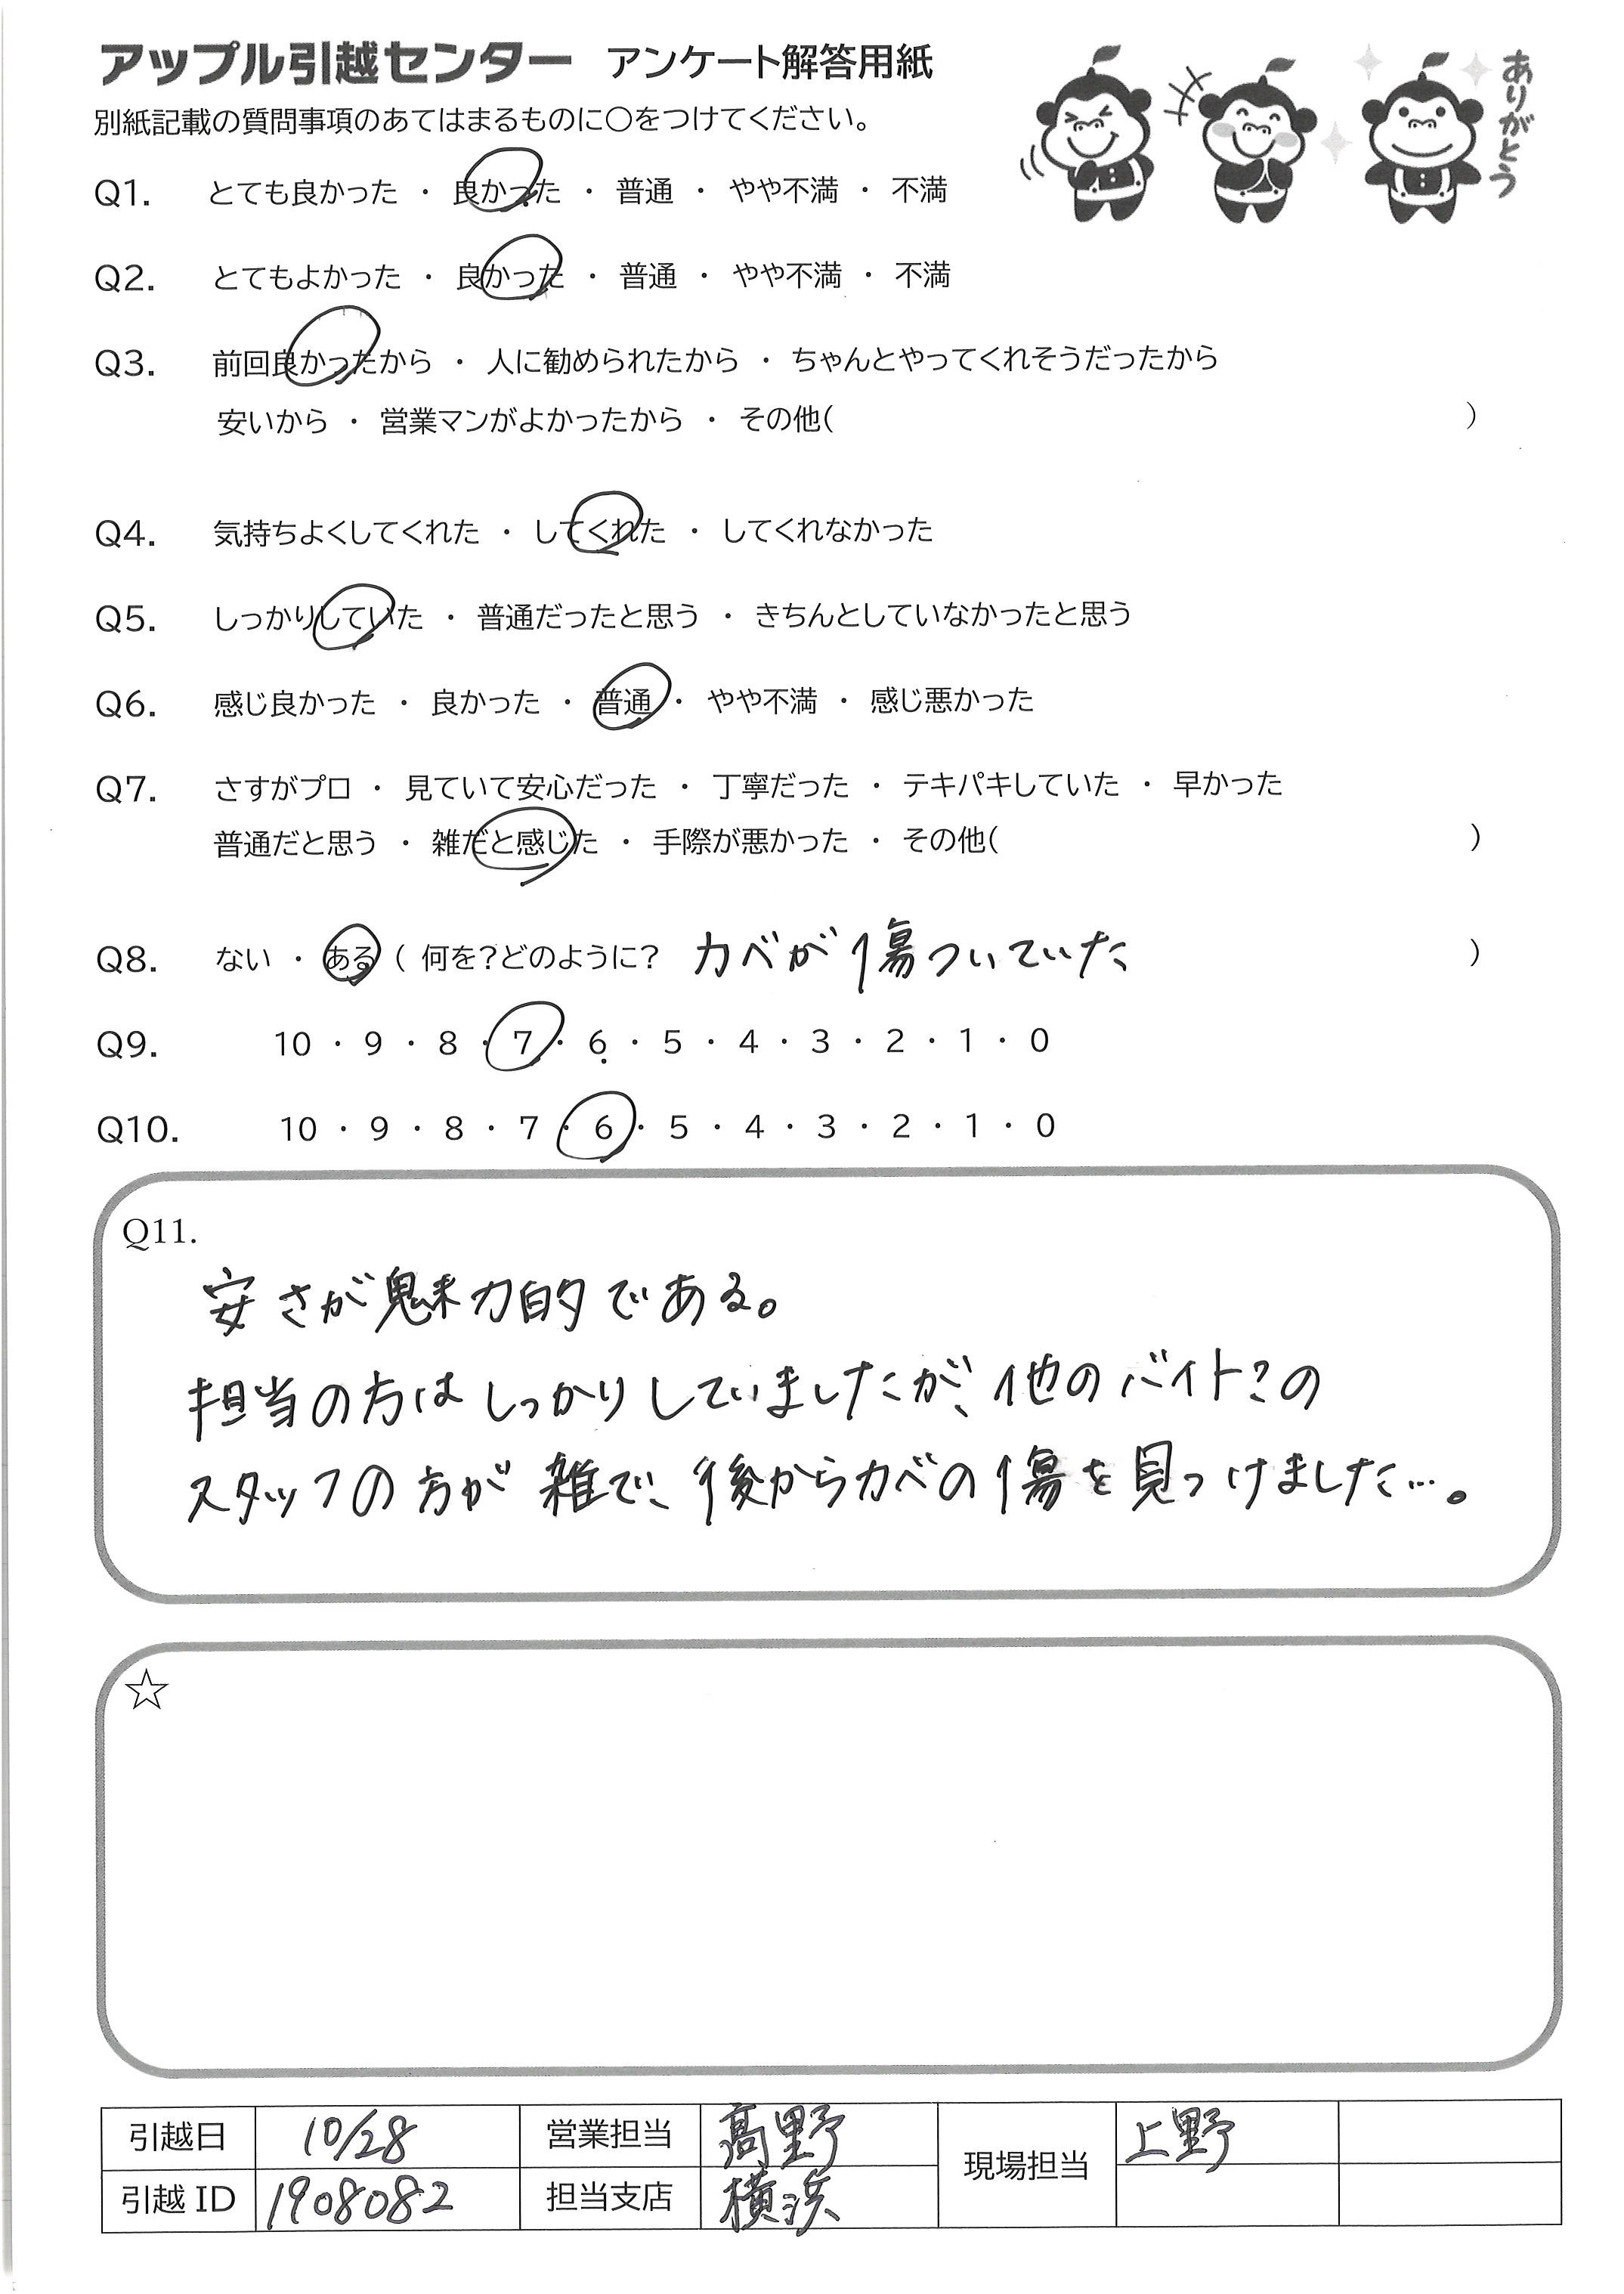 アップル引越センター アンケート解答用紙
ありがとう
別紙記載の質問事項のあてはまるものに〇をつけてください。
Q1. とても良かった ・ 良かった ・ 普通 ・ やや不満 ・ 不満
Q2. とてもよかった ・ 良かった ・ 普通 ・ やや不満 ・ 不満
Q3. 前回良かったから ・ 人に勧められたから ・ ちゃんとやってくれそうだったから
安いから ・ 営業マンがよかったから ・ その他( )
Q4. 気持ちよくしてくれた ・ してくれた ・ してくれなかった
Q5. しっかりしていた ・ 普通だったと思う ・ きちんとしていなかったと思う
Q6. 感じ良かった ・ 良かった ・ 普通 ・ やや不満 ・ 感じ悪かった
Q7. さすがプロ ・ 見ていて安心だった ・ 丁寧だった ・ テキパキしていた ・ 早かった
普通だと思う ・ 雑だと感じた ・ 手際が悪かった ・ その他( )
Q8. ない ・ ある ( 何を?どのように? カベが傷ついていた )
Q9. 10 ・ 9 ・ 8 ・ 7 ・ 6 ・ 5 ・ 4 ・ 3 ・ 2 ・ 1 ・ 0
Q10. 10 ・ 9 ・ 8 ・ 7 ・ 6 ・ 5 ・ 4 ・ 3 ・ 2 ・ 1 ・ 0
Q11.
安さが魅力的である。
担当の方はしっかりしていましたが、他のバイト?の
スタッフの方が雑で、後からカベの傷を見つけました…。
☆
引越日 10/28 営業担当 髙野 現場担当 上野
引越ID 1908082 担当支店 横浜